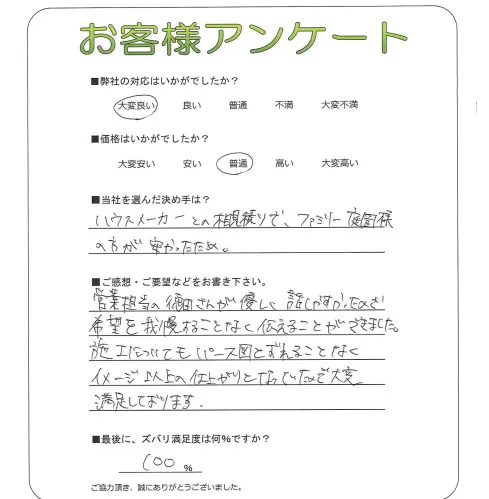 お客様アンケート
■弊社の対応はいかがでしたか？
大変良い 良い 普通 不満 大変不満
■価格はいかがでしたか？
大変安い 安い 普通 高い 大変高い
■当社を選んだ決め手は？
ハウスメーカーとの相見積りで、ファミリー庭園様
の方が安かったため。
■ご感想・ご要望などをお書き下さい。
営業担当の徳田さんが優しく話しやすかったので
希望を我慢することなく伝えることができました。
施工についてもパース図とずれることなく
イメージ以上の仕上がりとなっていたので大変
満足しております。
■最後に、ズバリ満足度は何%ですか？
100 %
ご協力頂き、誠にありがとうございました。